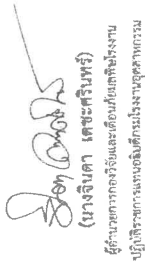 (นางจินดา เตชะศรินทร์)
ผู้อำนวยการกองวิจัยและเตือนภัยมลพิษโรงงาน
ปฏิบัติราชการแทนอธิบดีกรมโรงงานอุตสาหกรรม